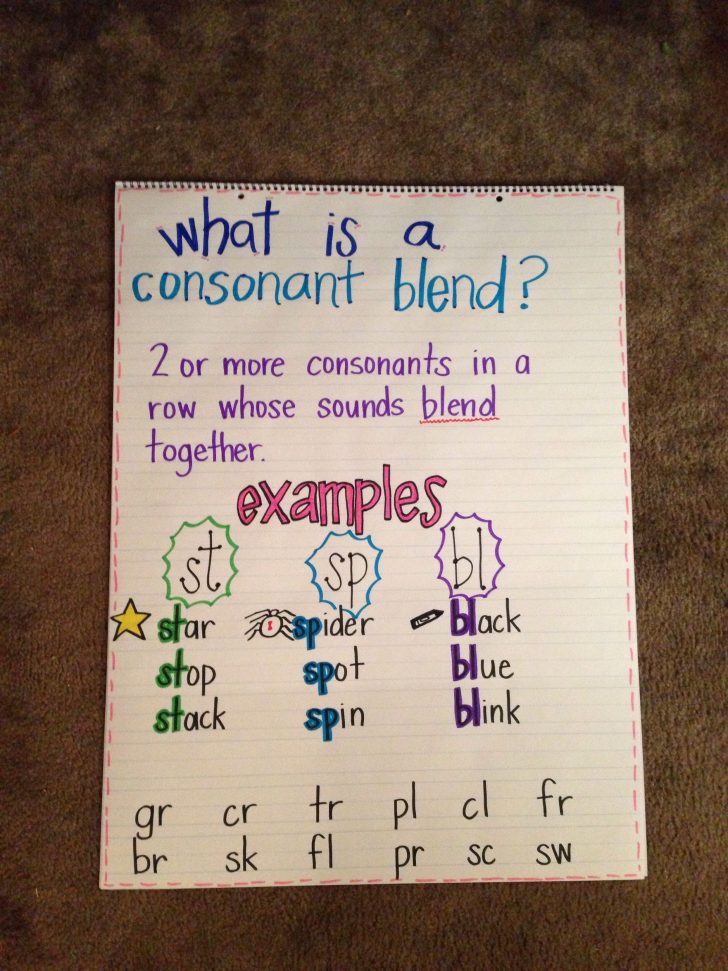 what is a
consonant blend?
2 or more consonants in a
row whose sounds blend
together.
examples
st sp bl
star spider black
stop spot blue
stack spin blink
gr cr tr pl cl fr
br sk fl pr sc sw